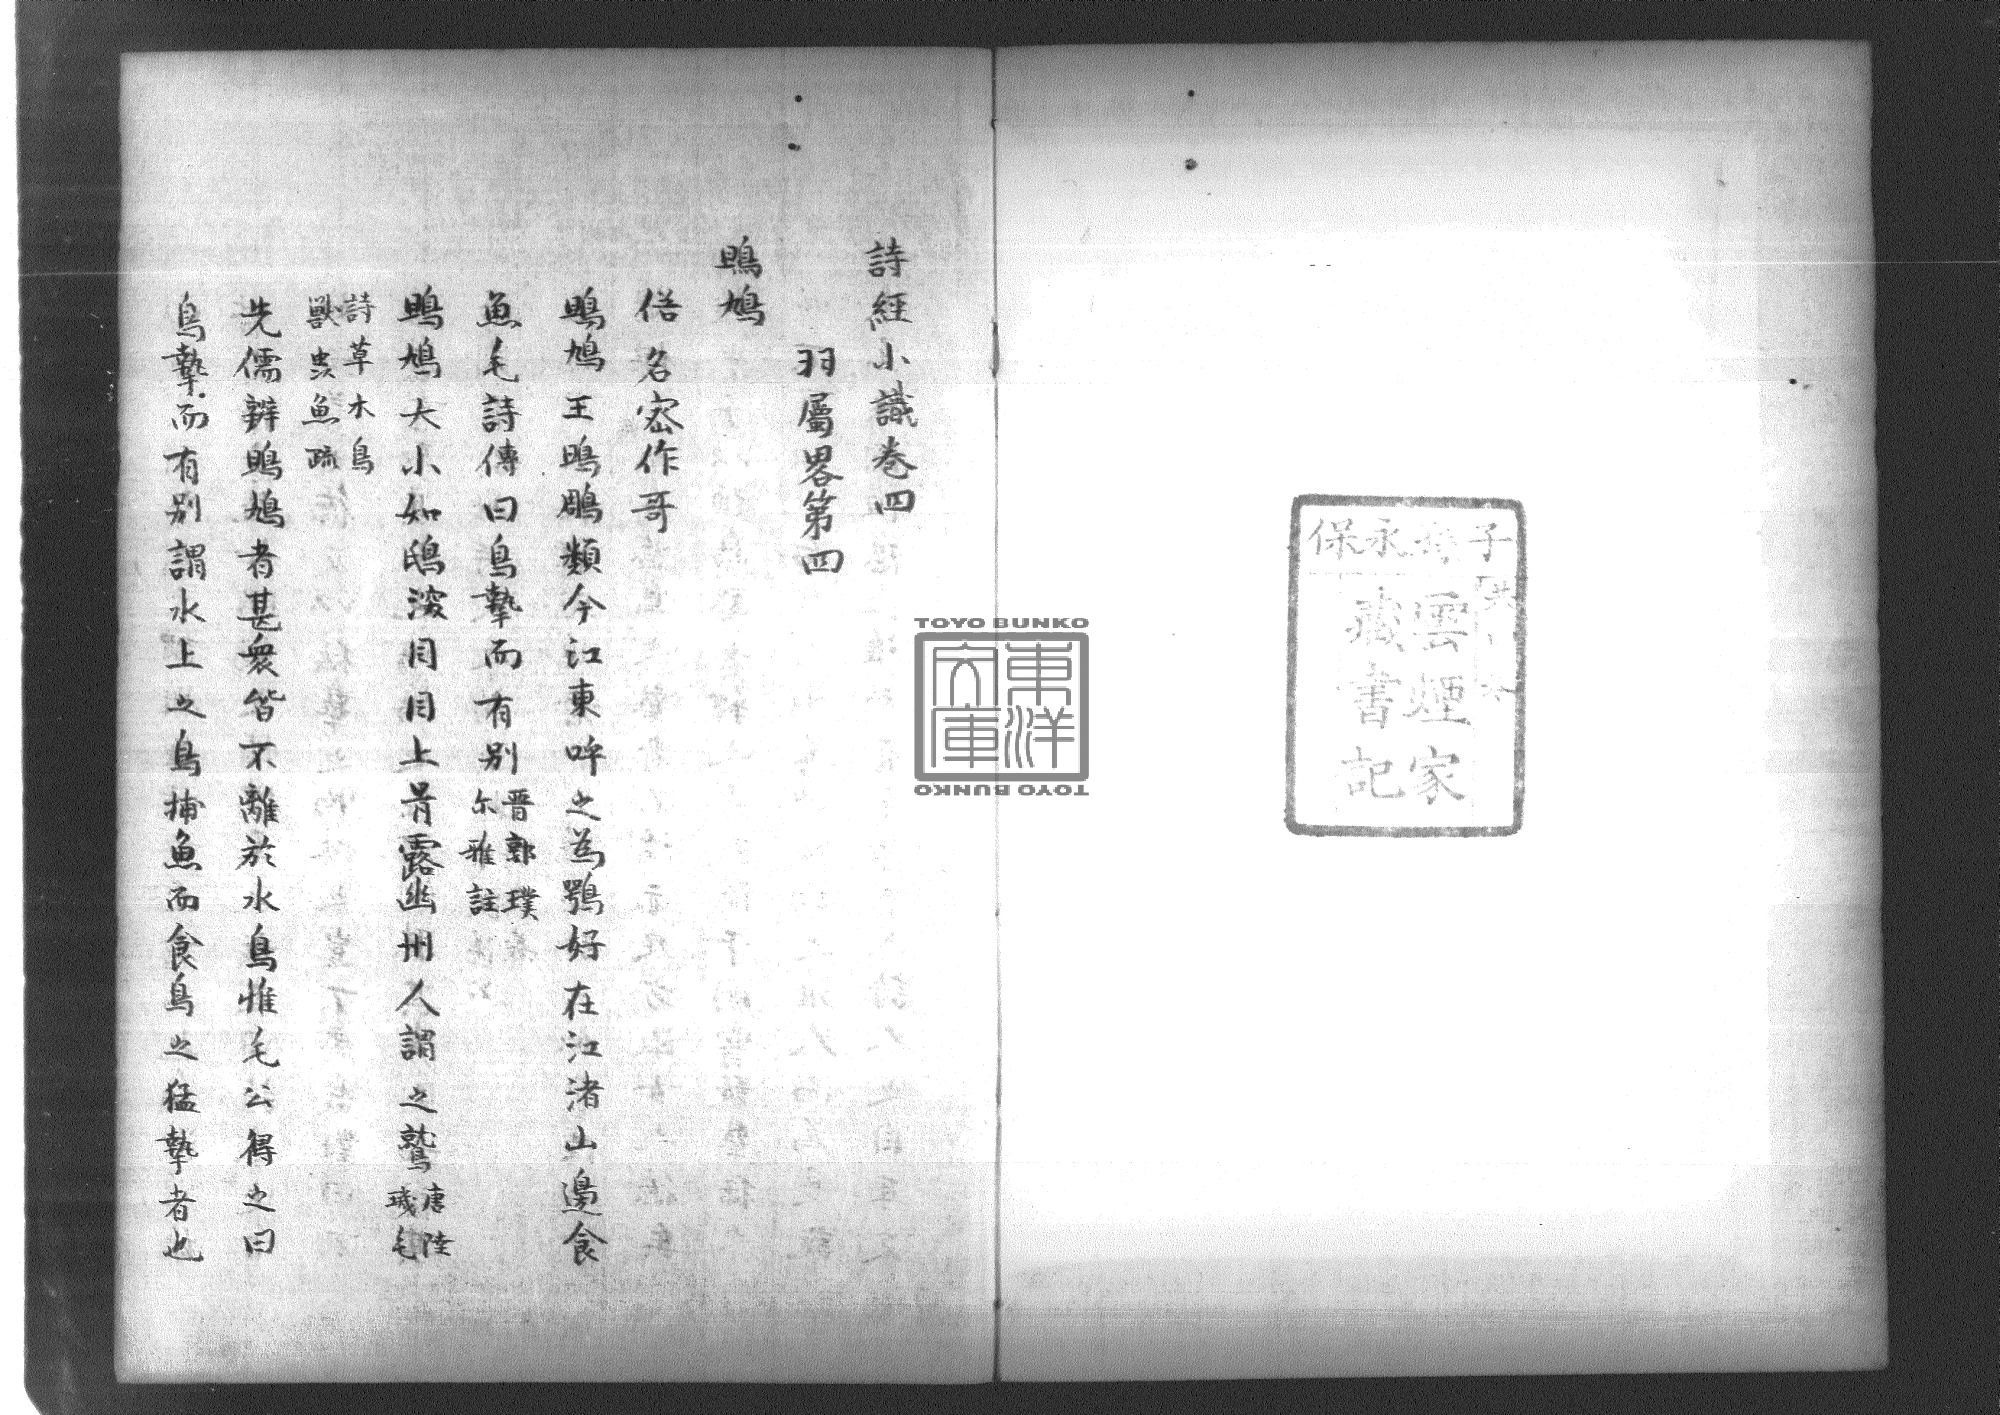 子孫永保
雲煙家
藏書記
TOYO BUNKO
東洋
文庫
TOYO BUNKO
詩經小識卷四
羽屬畧第四
鴡鳩
俗名宓作哥
鴡鳩王鴡鵰類今江東呼之為鶚好在江渚山邊食
魚毛詩傳曰鳥摯而有別晋郭璞
尓雅註
鴡鳩大小如鴟深目目上骨露幽州人謂之鷲唐陸
璣毛
詩草木鳥
獸虫魚疏
先儒辯鴡鳩者甚衆皆不離於水鳥惟毛公得之曰
鳥摯而有別謂水上之鳥捕魚而食鳥之猛摯者也